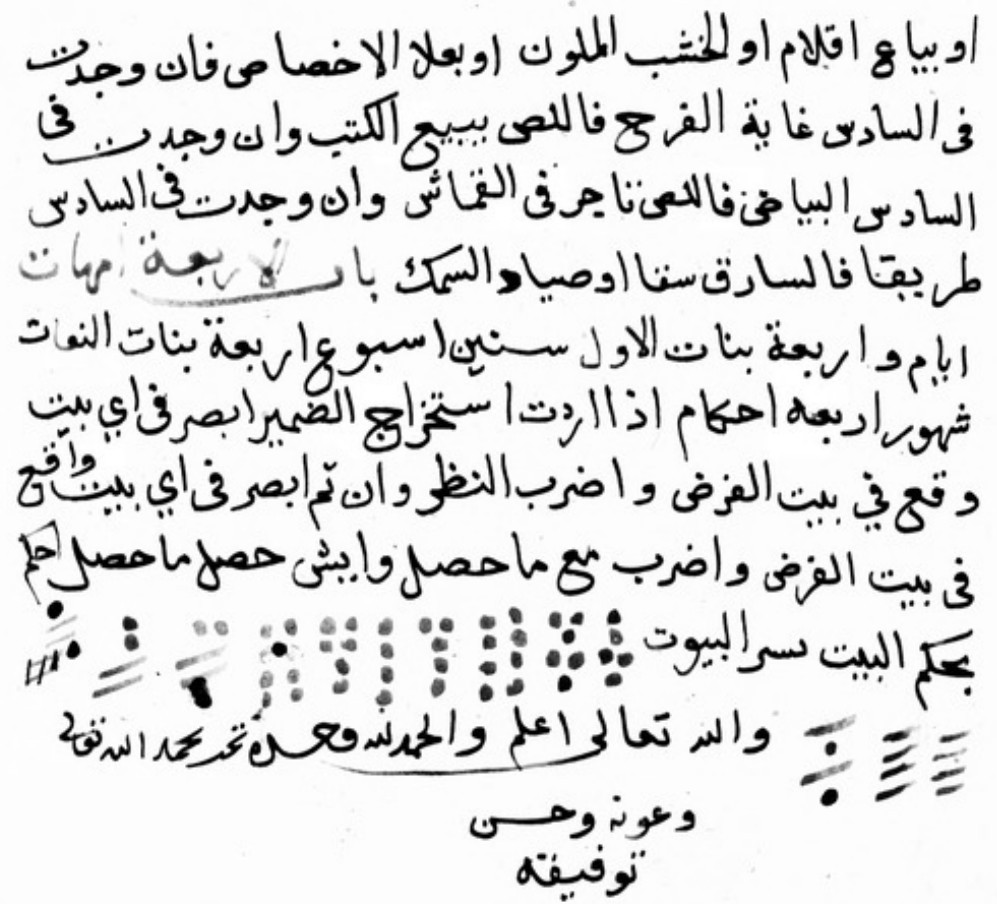 او بياع اقلام او الخشب الملون او بعلا الاخصاص فان وجدت
فى السادس غاية الفرح فاللص يبيع الكتب وان وجدت فى
السادس البياض فاللص تاجر فى القماش وان وجدت فى السادس
طريقا فالسارق سقا او صياد السمك باب الاربعة امهات
ايام و اربعة بنات الاول سنين اسبوع اربعة بنات النعات
شهور اربعه احكام اذا اردت استخراج الضمير ابصر فى اي بيت
وقع في بيت الفرض واضرب النظر وان تم ابصر فى اي بيت واقع
فى بيت الفرض واضرب مع ما حصل وايش حصل ما حصل احكم
بحكم البيت بسر البيوت
والله تعالى اعلم والحمد لله وحده تحد بحمد الله تعالى
وعونه وحسن
توفيقه